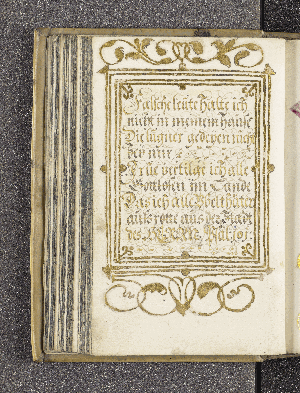 Falsche leute halte ich
nicht in meinem hause
Die lügner gedeyen nicht
bey mir
Frue vertilge ich alle
Gottlosen im Lande
Das ich alle Vbelthäter
ausrotte aus der Stadt
des HERRN, Psal. 101.